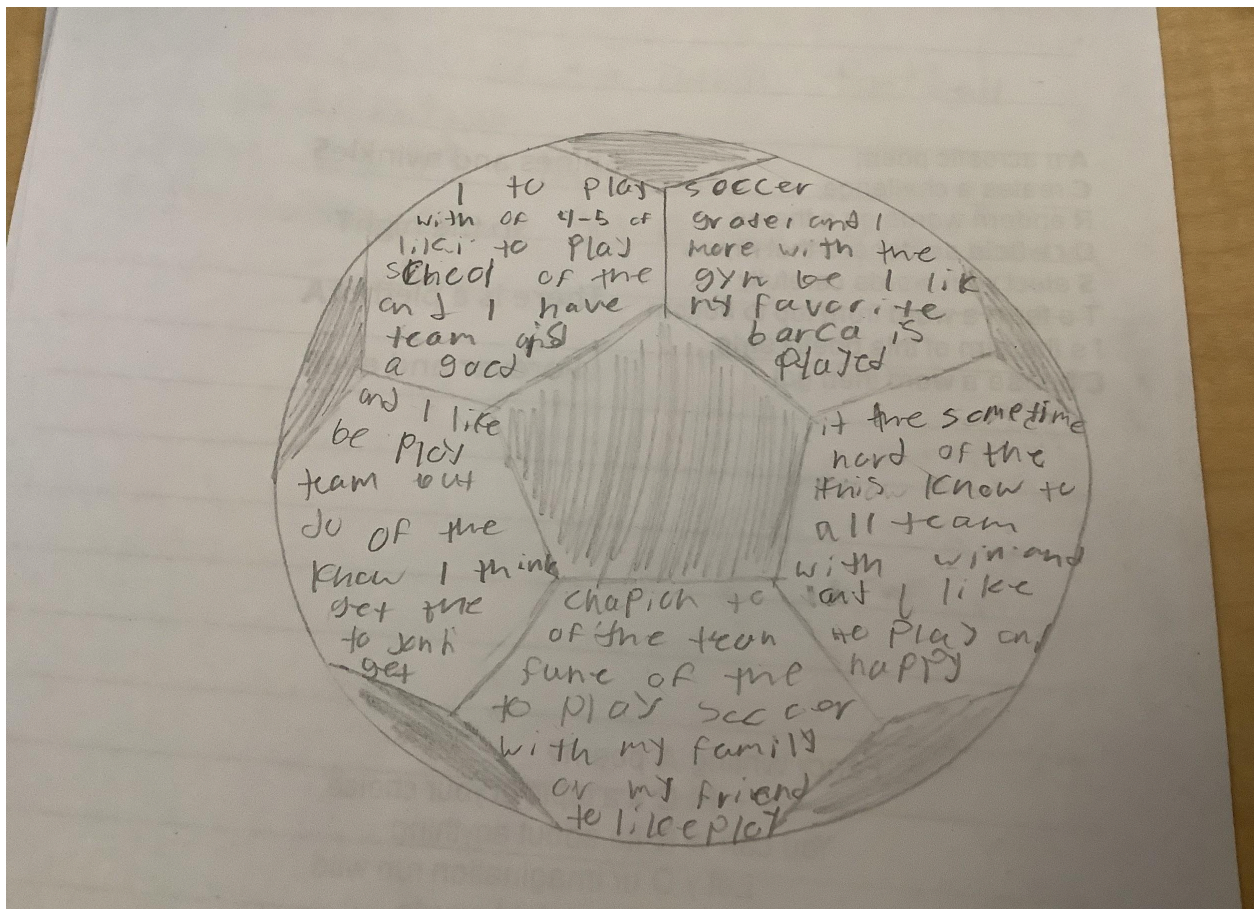 I to play
with of 4-5 of
like to play
school of the
and I have
team and
a good
soccer
grade, and I
more with the
gym be I lik
my favorite
barca is
played
and I like
be play
team but
do of the
know I think
get the
to
get
it the sometime
hard of the
this know to
all team
with win and
and I like
to play and
happy
chapion to
of the team
fune of the
to play soccer
with my family
or my friend
to like play